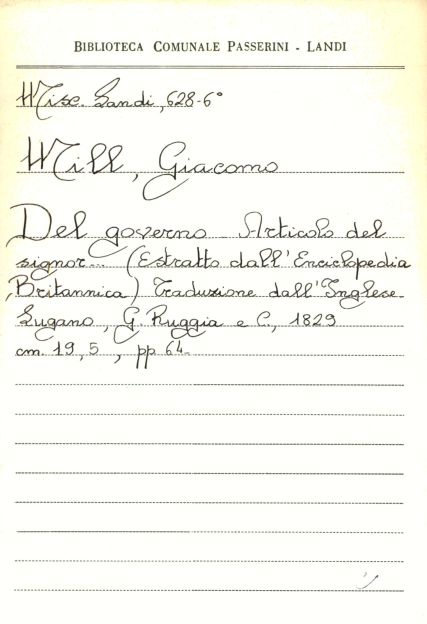 BIBLIOTECA COMUNALE PASSERINI - LANDI
Misc. Landi, 628-6°
Mill, Giacomo
Del governo Articolo del
signor... (Estratto dall'Enciclopedia
Britannica) Traduzione dall'Inglese
Lugano, G. Ruggia e C., 1829
cm. 19,5, pp. 64.